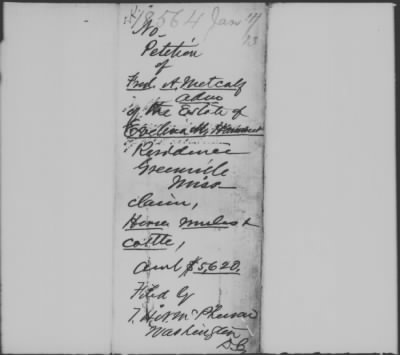 18564 Jan 11/73
No
Petition
of
Fred. A. Metcalf
admr
of the Estate of
Evelina
Residence
Greenville
Miss
claim,
Horses mules &
cattle,
amt $5,620.
Filed by
Washington
D.C.